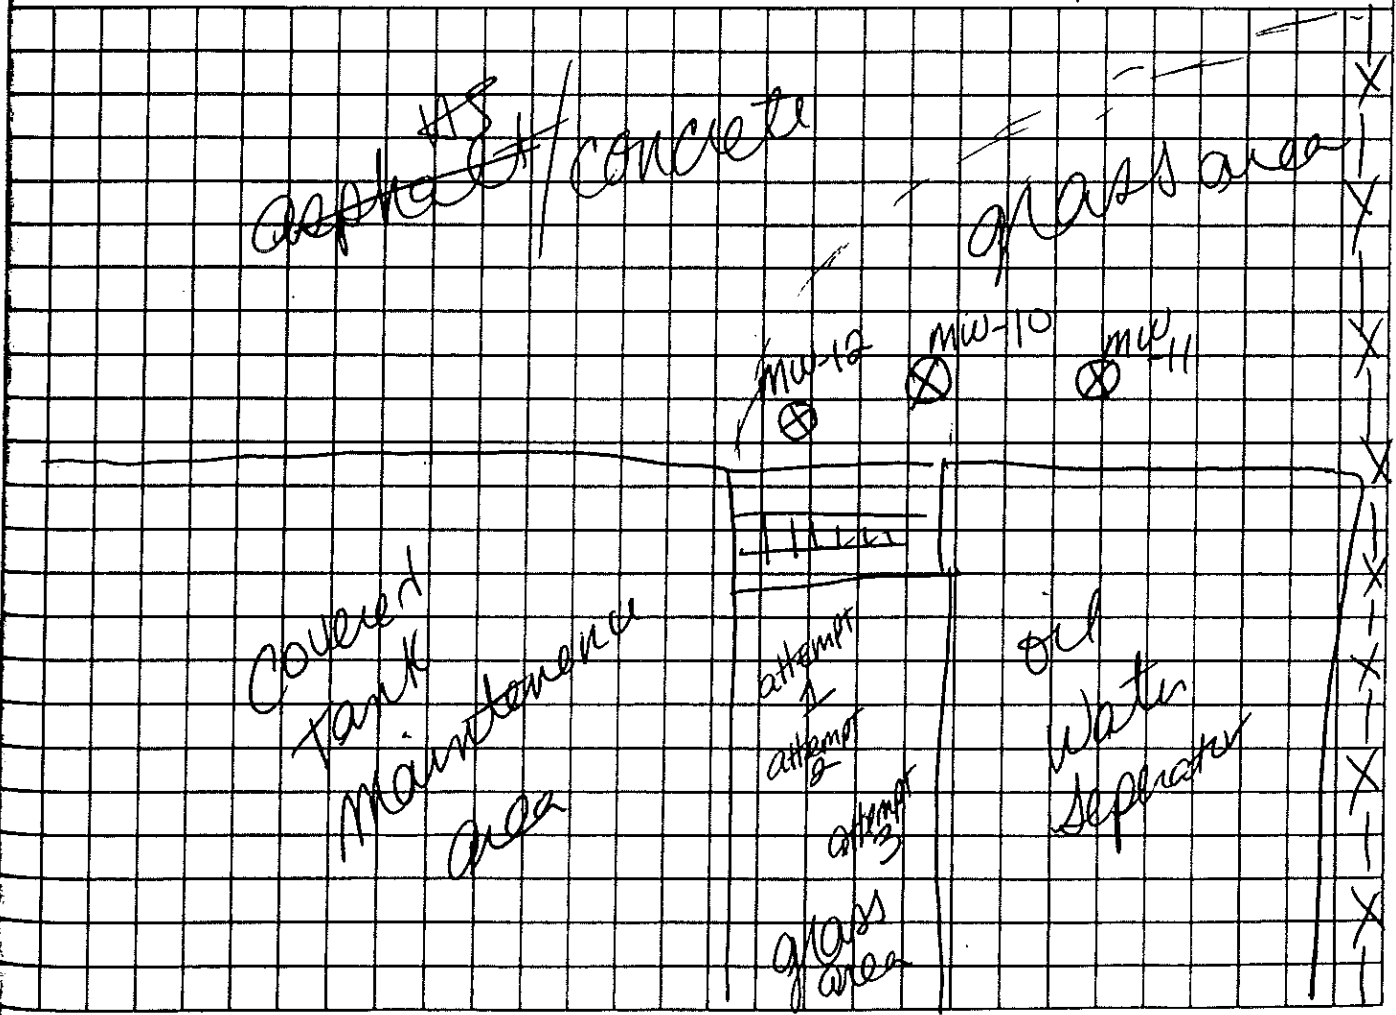 asphalt/concrete
grass area
MW-12
MW-10
MW
-11
Covered
Tank
Maintenence
area
attempt
1
attempt
2
attempt
3
grass
area
oil
Water
Seperator